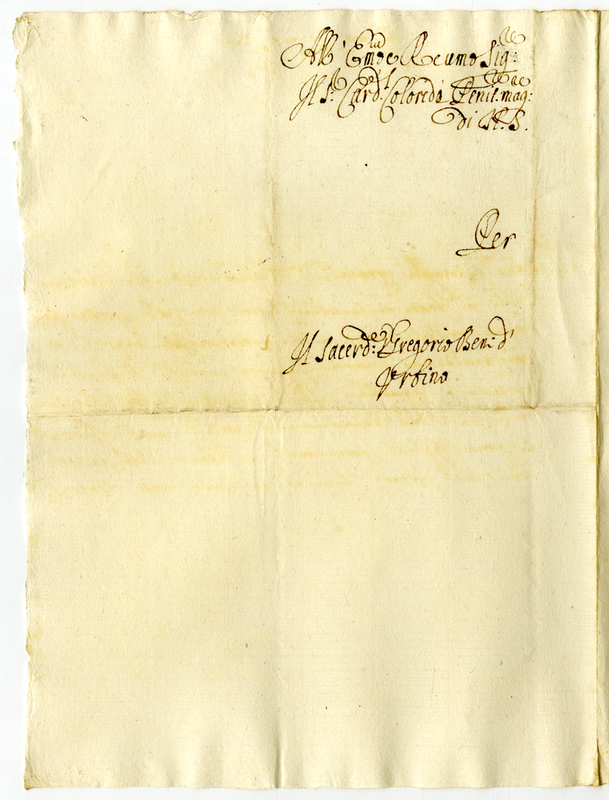 All' Em.mo e Re.umo Sig.re
Il S.r Card.l Coloredo Penit. mag.re
di N. S.
Per
Il Sacerd.e Gregorio Ben: d'
Urbino